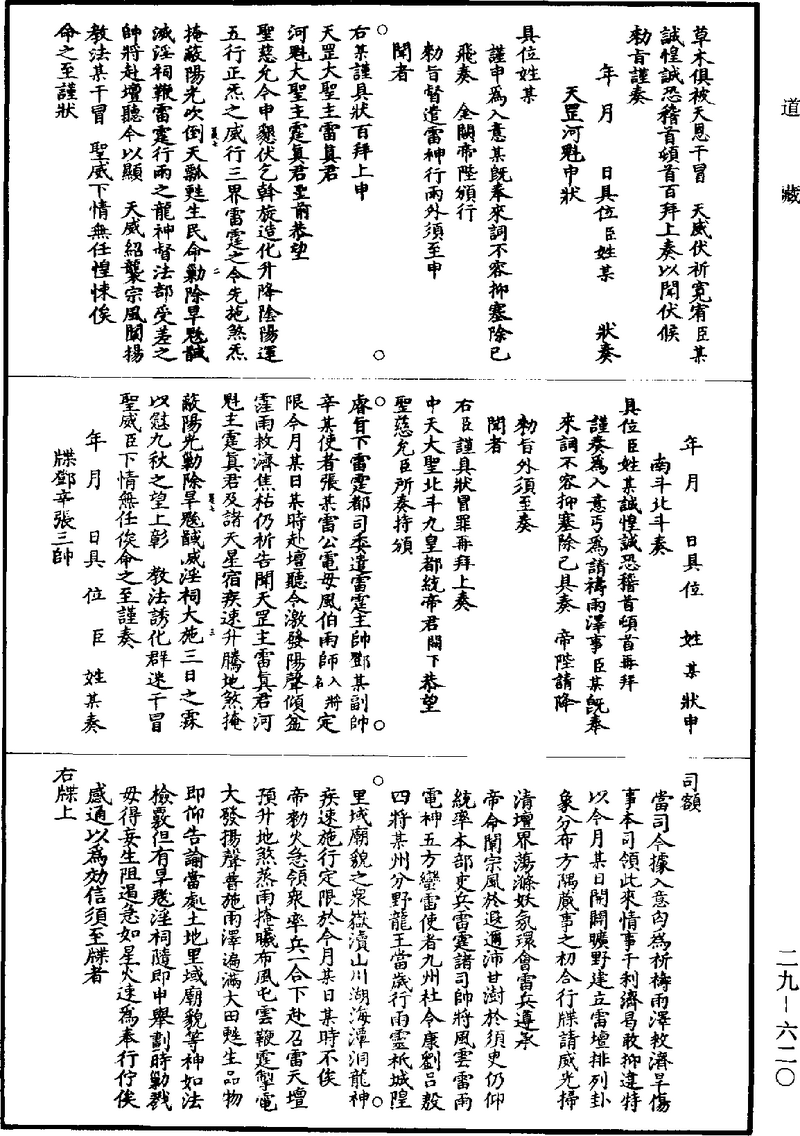 道藏
草木俱被天恩干冒　天威伏祈寬宥臣某
誠惶誠恐稽首頓首百拜上奏以聞伏候
勑旨謹奏
年　月　　日具位臣姓某　　狀奏
天罡河魁申狀
具位姓某
謹申爲入意某旣奉來詞不容抑塞除已
飛奏　金闕帝陛頒行
勑旨督遣雷神行雨外須至申
聞者
右某謹具狀百拜上申
天罡大聖主雷眞君
河魁大聖主霆眞君聖前恭望
聖慈允令申懇伏乞斡旋造化升降陰陽運
五行正炁之威行三界雷霆之令先施煞炁
掩蔽陽光吹倒天瓢甦生民命勦除旱魃馘
滅淫祠鞭雷霆行雨之龍神督法都受差之
帥將赴壇聽令以顯　天威紹襲宗風闡揚
敎法某干冒　聖威下情無任惶悚俟
命之至謹狀
年　月　　日具　位　　姓　某　狀　申
南斗北斗奏
具位臣姓某誠惶誠恐稽首頓首再拜
謹奏爲入意丐爲請禱雨澤事臣某旣奉
來詞不容抑塞除已具奏　帝陛請降
勑旨外須至奏
聞者
右臣謹具狀冒罪再拜上奏
中天大聖北斗九皇都統帝君闕下恭望
聖慈允臣所奏特頒
睿旨下雷霆都司委遣雷霆主帥鄧某副帥
辛某使者張某雷公電母風伯雨師入將名定
限今月某日某時赴壇聽令激發陽聲傾盆
霔雨救濟焦枯仍祈告聞天罡主雷眞君河
魁主霆眞君及諸天星宿疾速升騰地煞掩
蔽陽光勦除旱魃馘滅淫祠大施三日之霖
以慰九秋之望上彰　敎法誘化群迷干冒
聖威臣下情無任俟命之至謹奏
年　月　　日具　位　臣　姓某奏
牒鄧辛張三帥
司額
當司今據入意匄爲祈禱雨澤救濟旱傷
事本司領此來情事干利濟曷敢抑違特
以今月某日開闢曠野建立雷壇排列卦
象分布方隅蕆事之初合行牒請威光掃
清壇界蕩滌妖氛環會雷兵遵承
帝命闡宗風於遐邇沛甘澍於須臾仍仰
統率本部吏兵雷霆諸司帥將風雲雷雨
電神五方蠻雷使者九州社令康劉呂殷
四將某州分野龍王當歲行雨靈祇城隍
里域廟貌之衆嶽瀆山川湖海潭洞龍神
疾速施行定限於今月某日某時不俟
帝勑火急領衆率兵一合下赴召雷天壇
預升地煞蒸雨掩曦布風屯雲鞭霆掣電
大發揚聲普施雨澤遍滿大田甦生品物
即仰告諭當處土地里域廟貌等神如法
檢覈但有旱魃淫祠隨即申舉劃時勦戮
毋得妄生阻遏急如星火速爲奉行佇俟
感通以爲効信須至牒者
右牒上
二九－六二〇